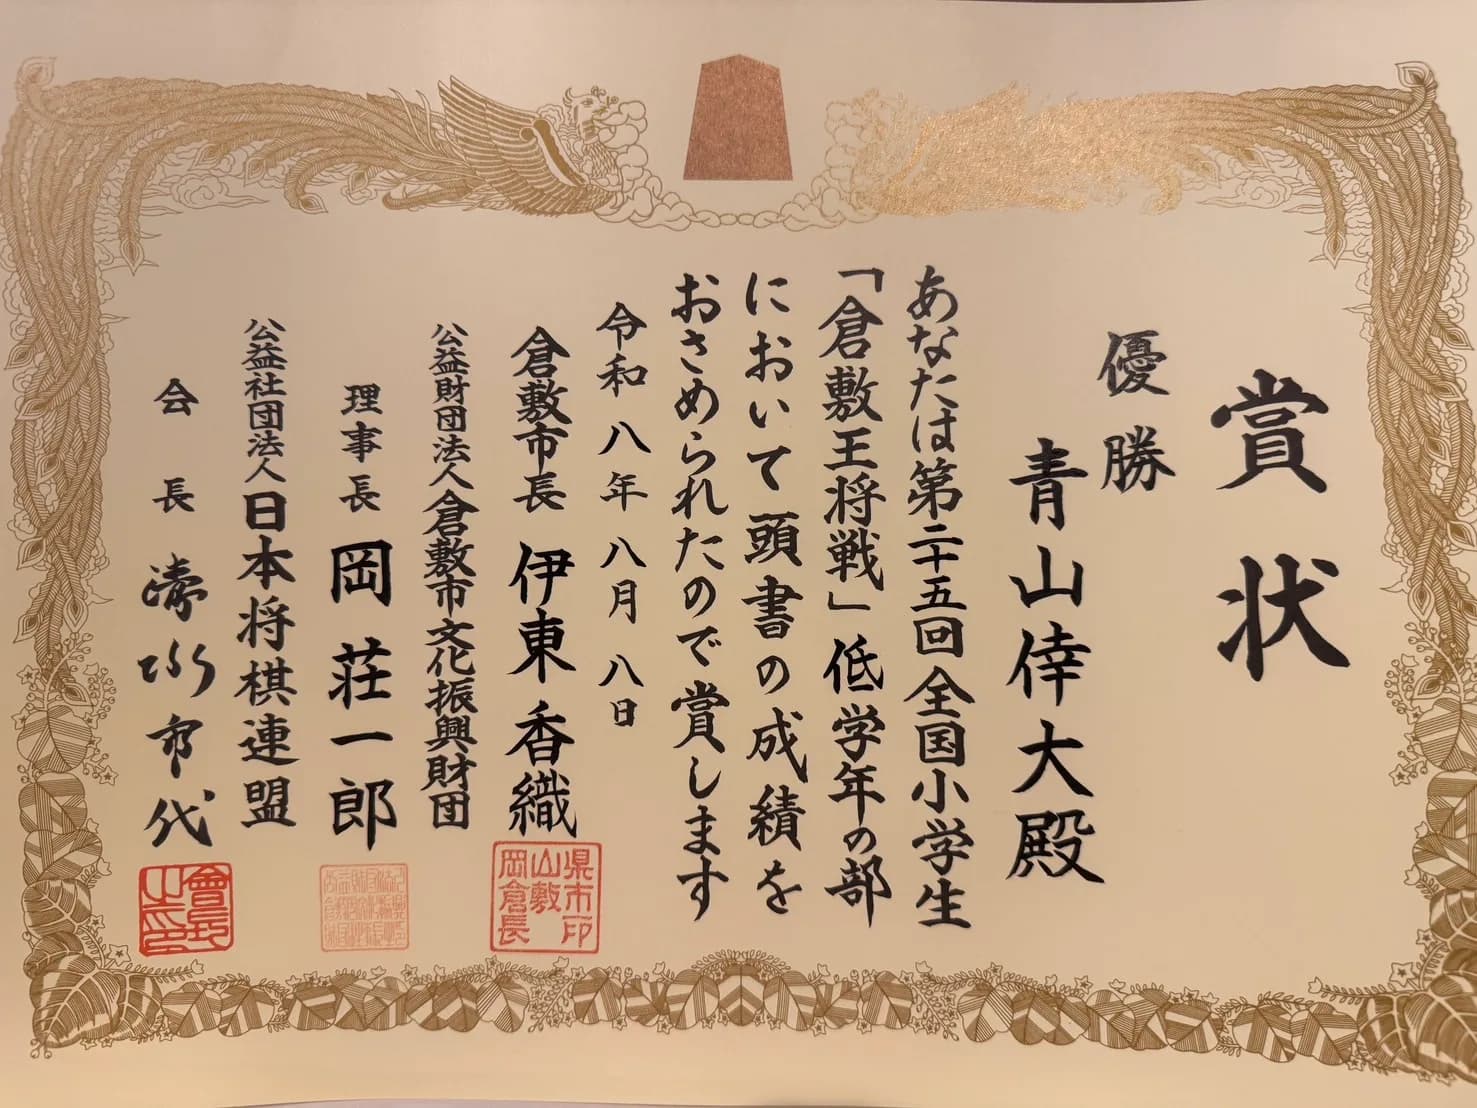 賞状
優勝
青山倖大殿
あなたは第二十五回全国小学生
「倉敷王将戦」低学年の部
において頭書の成績を
おさめられたので賞します
令和八年八月八日
倉敷市長 伊東香織
公益財団法人倉敷市文化振興財団
理事長 岡荘一郎
公益社団法人日本将棋連盟
会長 清水市代
岡山県倉敷市長印
會長之印